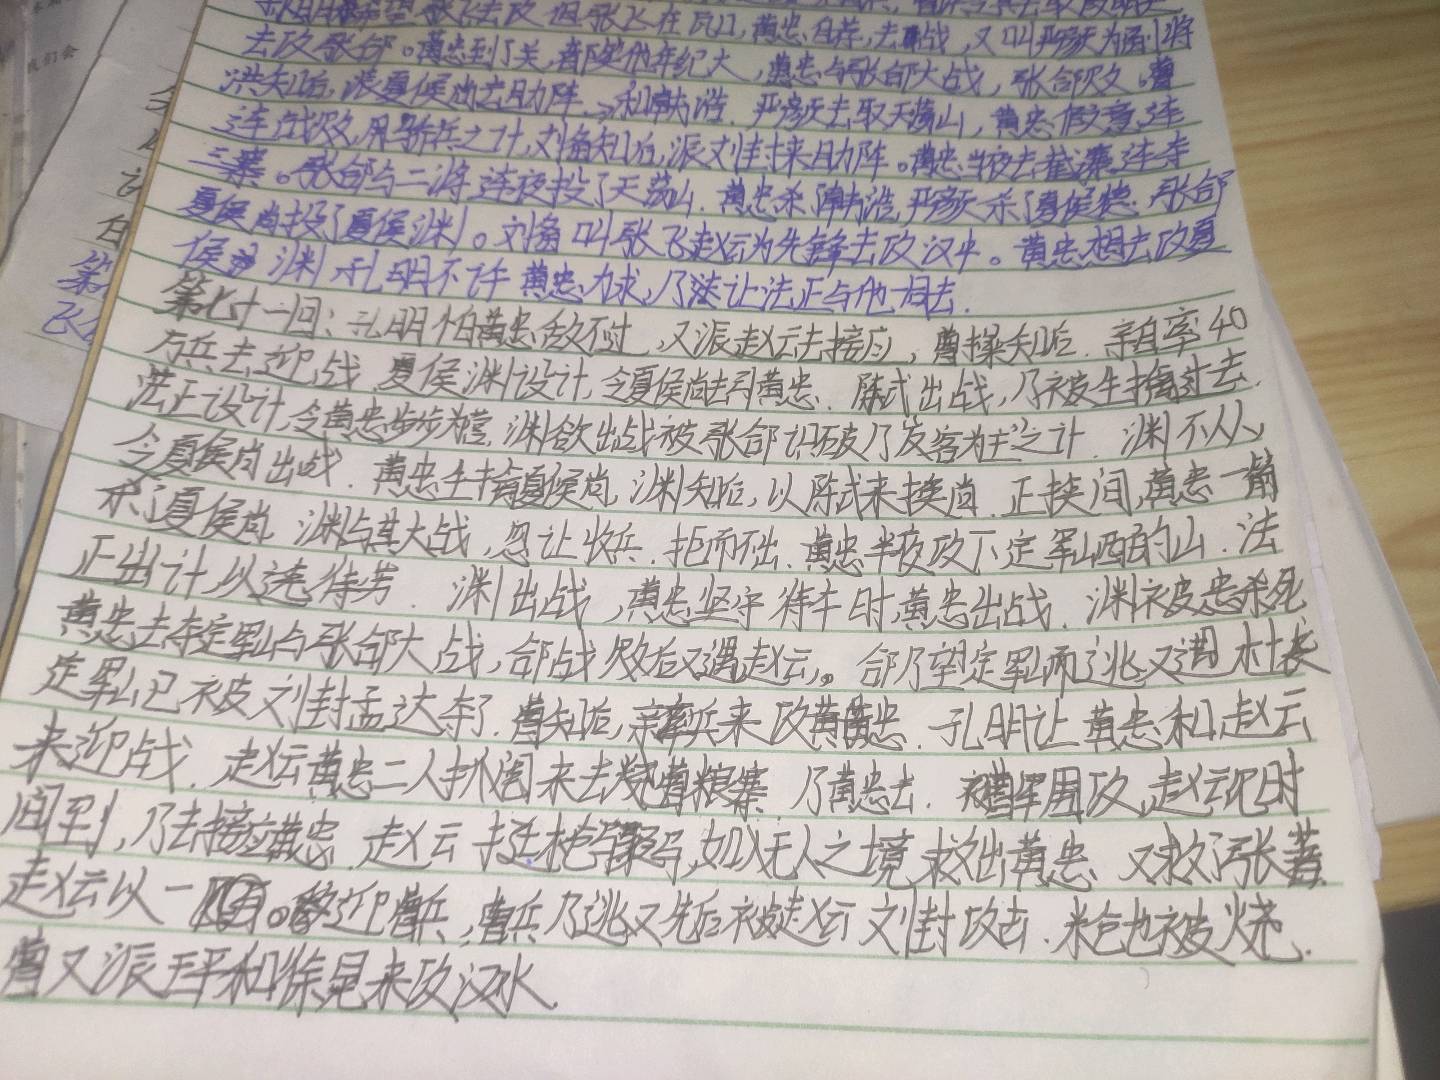 孔明希望张飞去攻 但张飞在瓦口,黄忠自荐,去战,又叫严颜为副将
去攻张郃。黄忠到了关,都他年纪大,黄忠与张郃大战,张郃败。曹
洪知后,派夏侯尚去助阵 和韩浩.严颜去取天荡山,黄忠假意连
连战败,用骄兵之计,刘备知后,派刘封来助阵。黄忠当夜去截寨连夺
三寨。张郃与二将连夜投了天荡山.黄忠杀韩浩,严颜杀了夏侯德.张郃
夏侯尚投了夏侯渊。刘备叫张飞赵云为先锋去攻汉中。黄忠想去攻夏
侯渊 孔明不许 黄忠力求,乃让法正与他一同去.
第七十一回:孔明怕黄忠敌不过,又派赵云去接应,曹操知后.亲自率40
万兵去迎战.夏侯渊设计,令夏侯尚去引黄忠.陈式出战,乃被生擒过去.
法正设计,令黄忠步步为营.渊欲出战被张郃识破了"反客为主"之计.渊不从、
令夏侯尚出战.黄忠生擒夏侯尚,渊知后,以陈式来换尚.正换间,黄忠一箭
杀了夏侯尚.渊与其大战,忽让收兵.拒而不出.黄忠半夜攻下定军山西的山.法
正出计,以逸待劳.渊出战,黄忠坚守 待午时,黄忠出战.渊被忠杀死
黄忠去夺定军山与张郃大战,郃战败后又遇赵云。郃乃望定军山而逃,又遇杜袭
定军山已被刘封孟达夺了.曹知后,亲率兵来攻黄忠.孔明让黄忠和赵云
来迎战.赵云黄忠二人抓阄来去烧曹粮寨.乃黄忠去.被曹军围攻,赵云见时
间到,乃去接应黄忠.赵云挺枪骤马,如入无人之境 救出黄忠.又救了张著
赵云以一 迎曹兵,曹兵乃逃又先后被赵云 刘封攻击.米仓也被烧.
曹又派王平和徐晃来攻汉水.